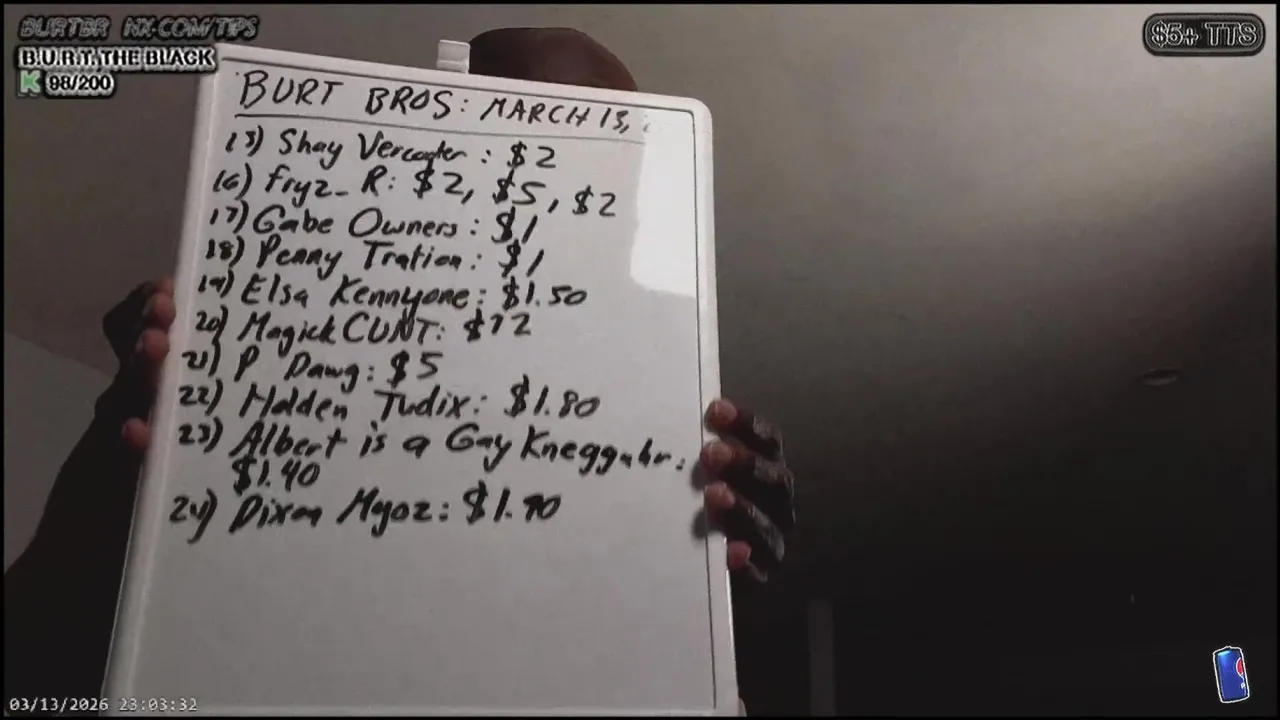 BURTBR NX.COM/TIPS
B.U.R.T. THE BLACK
K 98/200
$5+ TTS
BURT BROS: MARCH 13,
15) Shay Vercoater: $2
16) Fryz_R: $2, $5, $2
17) Gabe Owners: $1
18) Penny Tration: $1
19) Elsa Kennyone: $1.50
20) MagickCUNT: $12
21) P Dawg: $5
22) Holden Tudix: $1.80
23) Albert is a Gay Kneggahr:
$1.40
24) Dixon Myoz: $1.90
03/13/2026 23:03:32